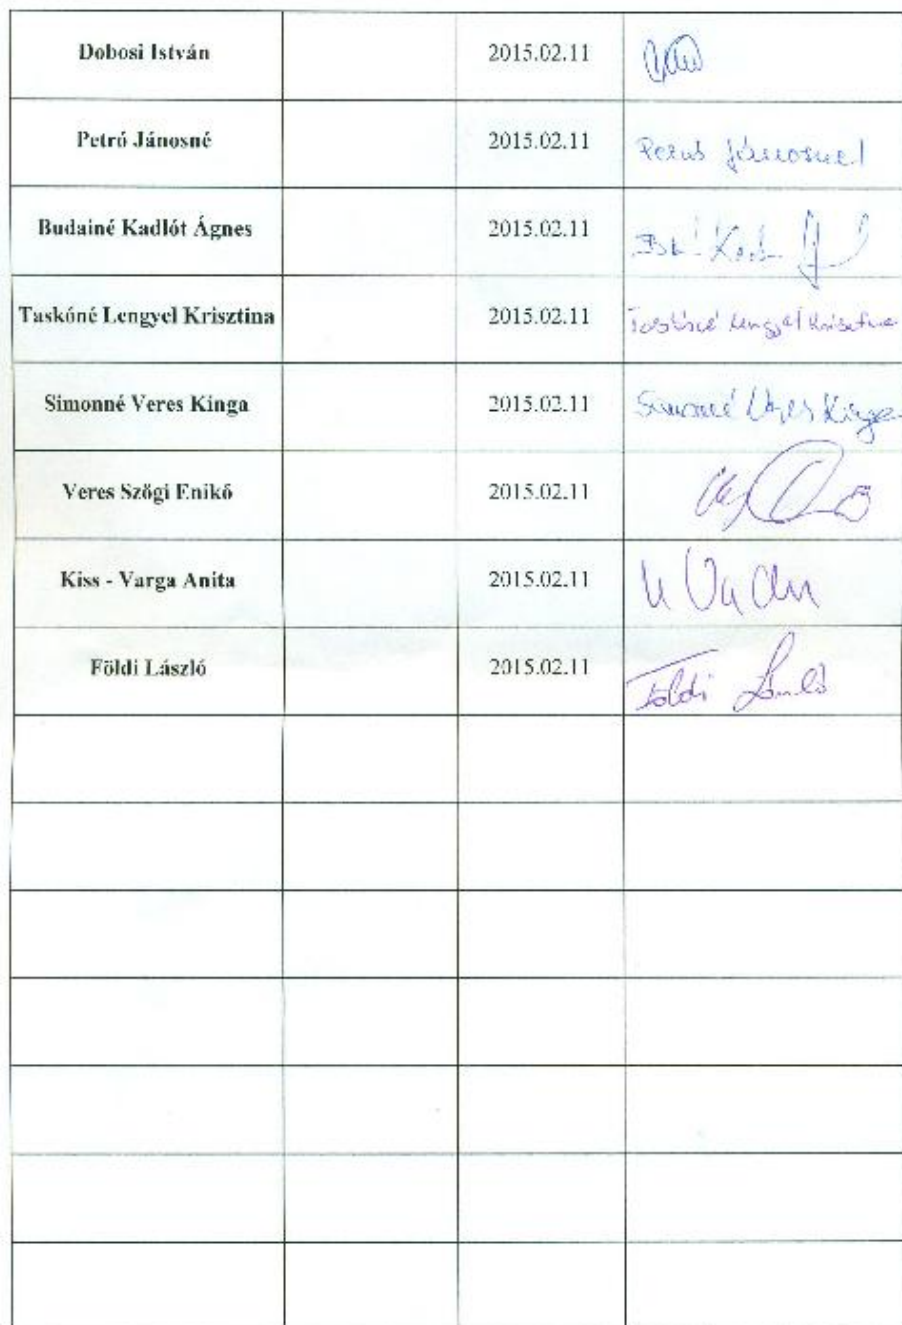 Dobosi István 2015.02.11
Petró Jánosné 2015.02.11 Jánosné
Budainé Kadlót Ágnes 2015.02.11
Taskóné Lengyel Krisztina 2015.02.11 Taskóné Lengyel Krisztina
Simonné Veres Kinga 2015.02.11 Simonné Veres Kinga
Veres Szögi Enikő 2015.02.11
Kiss - Varga Anita 2015.02.11
Földi László 2015.02.11 Földi László